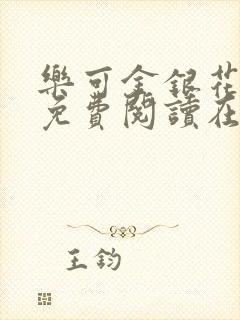 樂可金銀花
免費閱讀在
王鈞